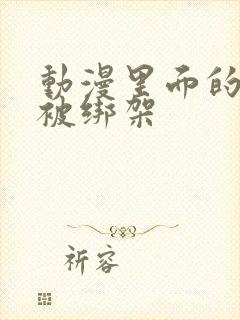 動漫里而的
被绑架
祈容